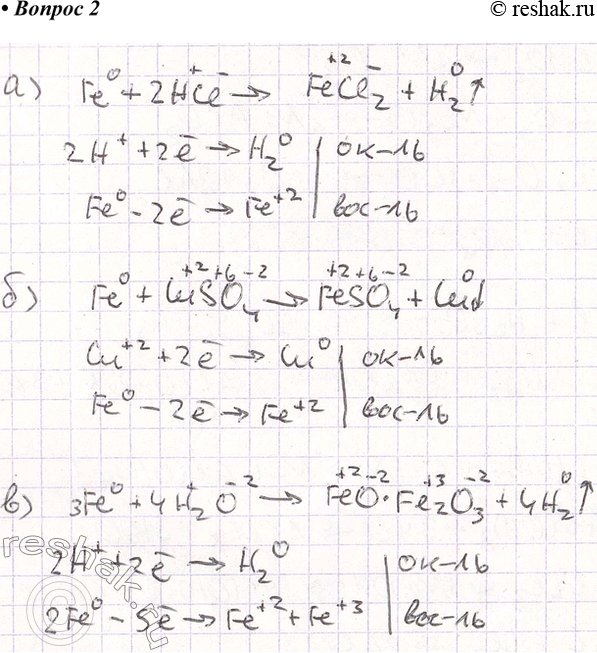 • Вопрос 2
© reshak.ru
а) Fe⁰ + 2H⁺Cl⁻ → Fe⁺²Cl₂⁻ + H₂⁰↑
2H⁺ + 2ē → H₂⁰ | ок-ль
Fe⁰ - 2ē → Fe⁺² | вос-ль
б) Fe⁰ + Cu⁺²S⁺⁶O₄⁻² → Fe⁺²S⁺⁶O₄⁻² + Cu⁰↓
Cu⁺² + 2ē → Cu⁰ | ок-ль
Fe⁰ - 2ē → Fe⁺² | вос-ль
в) 3Fe⁰ + 4H₂⁺O⁻² → Fe⁺²O⁻²·Fe₂⁺³O₃⁻² + 4H₂⁰↑
2H⁺ + 2ē → H₂⁰ | ок-ль
2Fe⁰ - 5ē → Fe⁺² + Fe⁺³ | вос-ль
reshak.ru